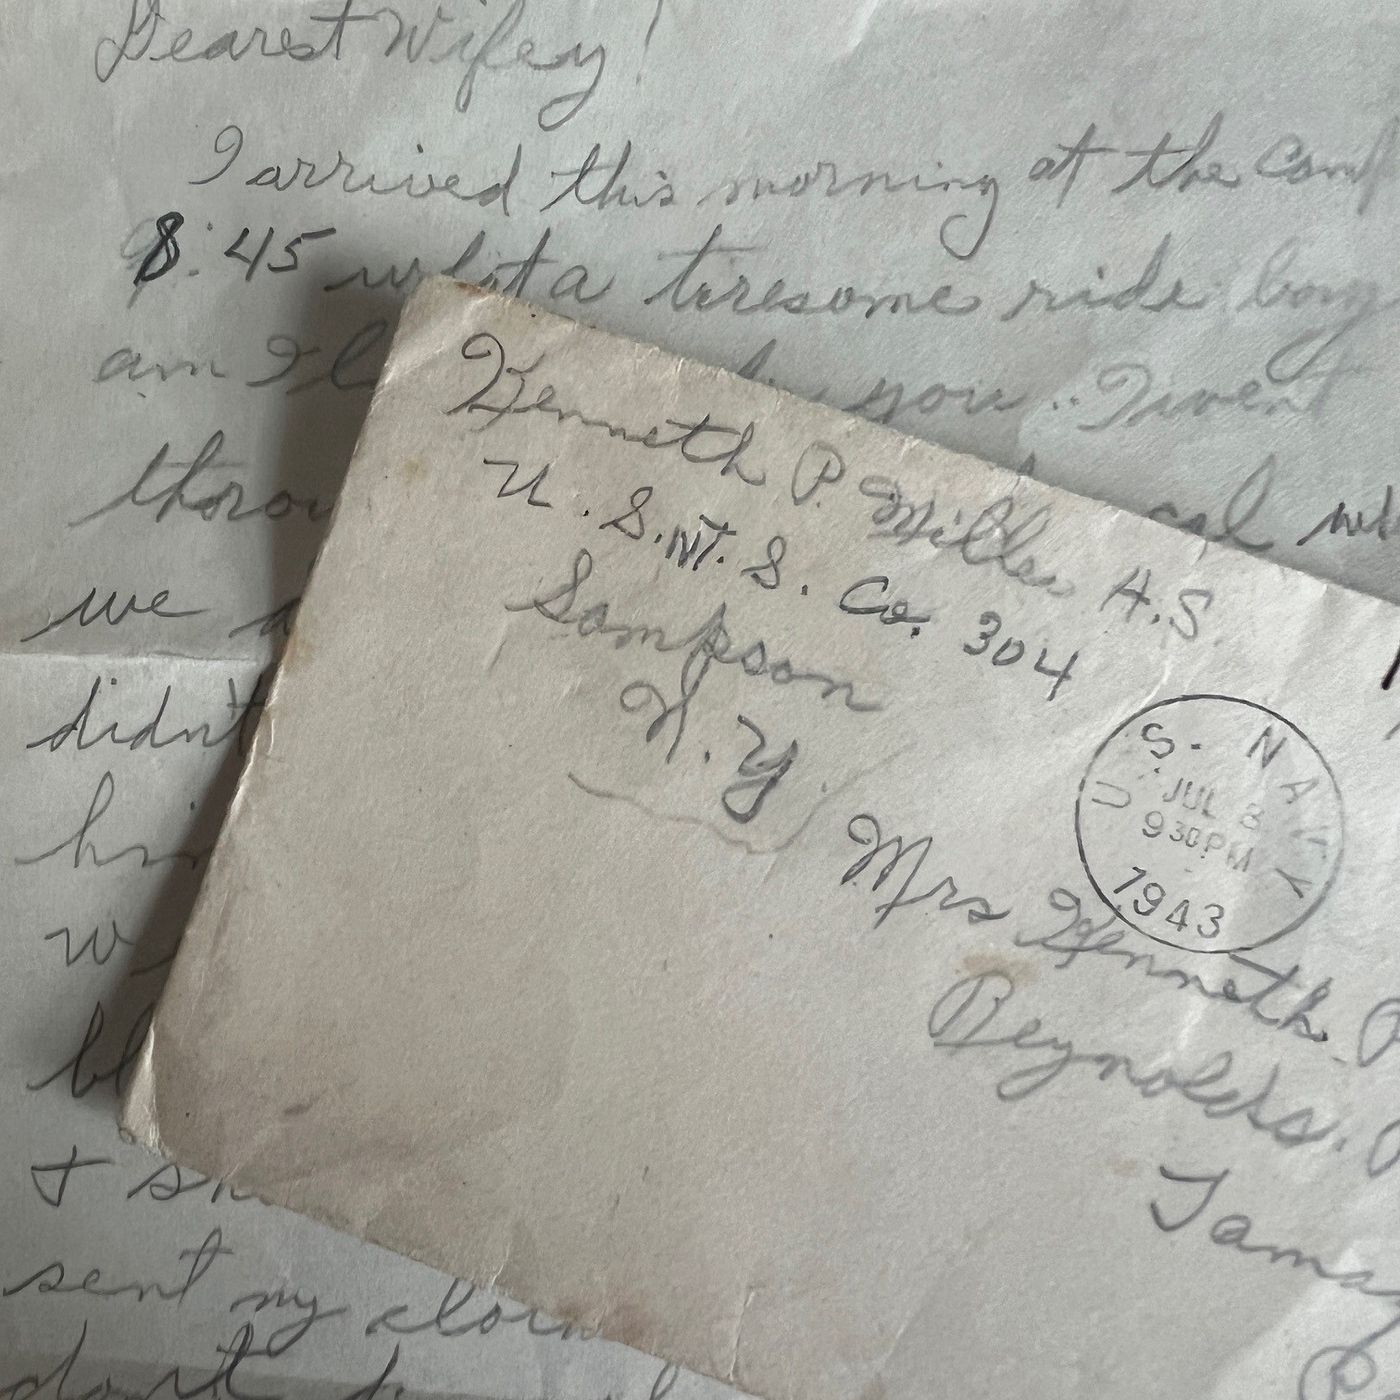 Dearest Wifey!
I arrived this morning at the
8:45 what a tiresome ride boy
am I you.. I went
we
didn't
sent my
don't
Kenneth P. Miller A.S.
U.S.N.T.S. Co. 304
Sampson
N.Y.
U.S. NAVY
JUL 8
930PM
1943
Mrs Kenneth. P
Reynolds.
Tama